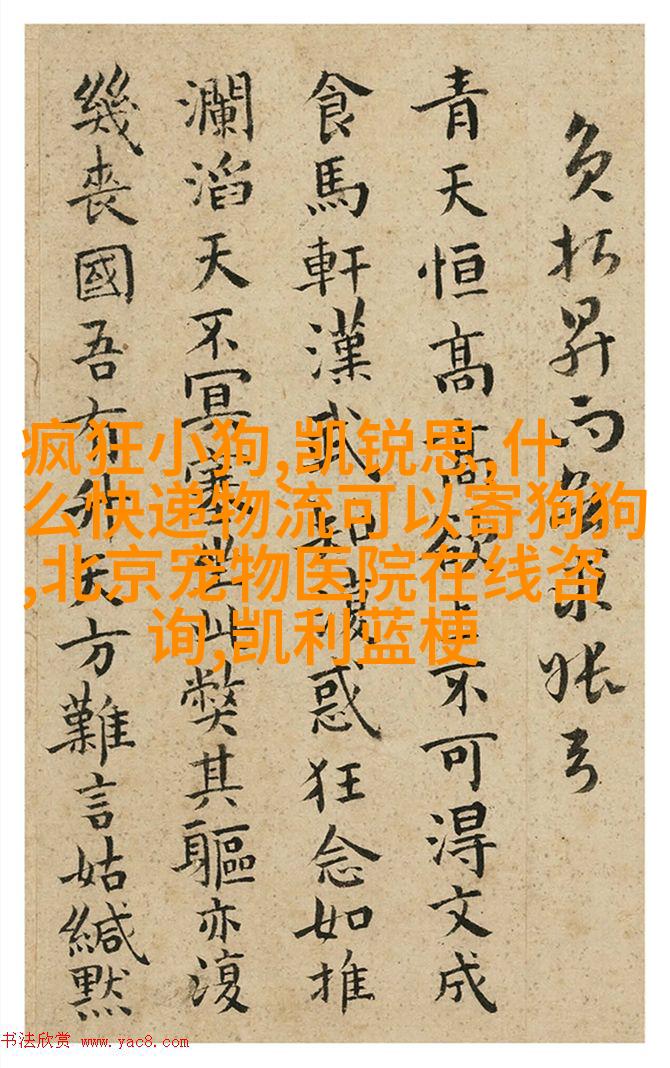 青天恒高高欲上不可得文成
食馬軒漢武惑狂念如推
瀾滔天不冥塞坐此弊其軀亦復
幾喪國吾有升天方難言姑緘黙
疯狂小狗,凯锐思,什
么快递物流可以寄狗狗
,北京宠物医院在线咨
询,凯利蓝梗
书法欣赏 www.yac8.com